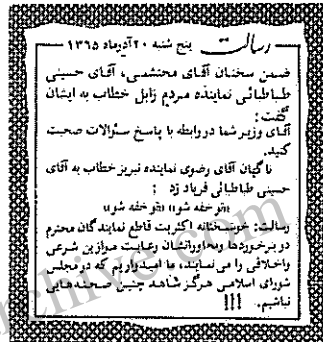 رسالت پنج شنبه ۲۰ آذرماه ۱۳۶۵
ضمن سخنان آقای محتشمی، آقای حسینی
طباطبائی نماینده مردم زابل خطاب به ایشان
گفت:
آقای وزیر شما در رابطه با پاسخ سئوالات صحبت
کنید.
ناگهان آقای رضوی نماینده تبریز خطاب به آقای
حسینی طباطبائی فریاد زد :
«تو خفه شو» «تو خفه شو»
رسالت: خوشبختانه اکثریت قاطع نمایندگان محترم
در برخوردها ومحاوراتشان رعایت موازین شرعی
واخلاقی را می نمایند، ما امیدواریم که در مجلس
شورای اسلامی هرگز شاهد چنین صحنه هایی
نباشیم. !!!
rchive.com